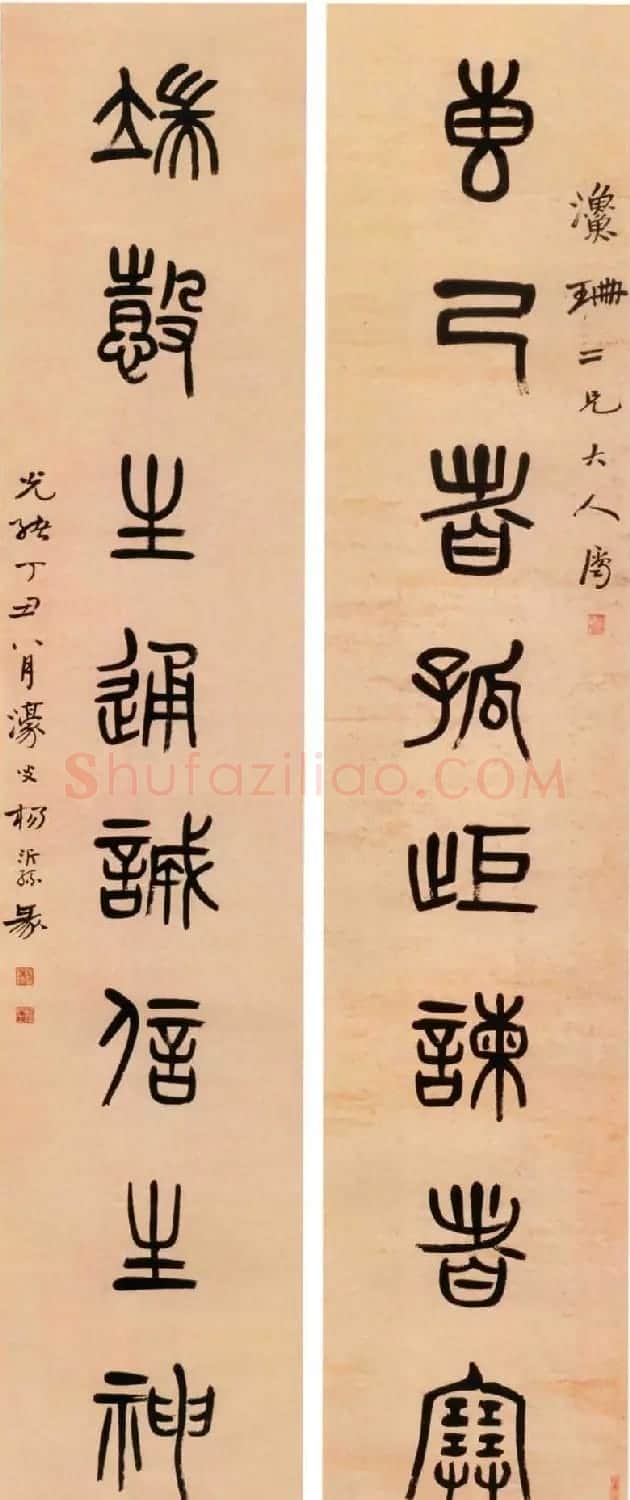 漁珊二兄大人屬
叀己者孤歫諫者塞
端愨生通誠信生神
光緒丁丑八月濠叟楊沂孫篆
Shufaziliao.COM